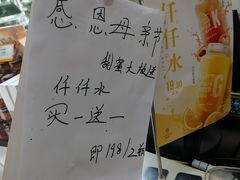 感恩母亲节
甜蜜大放送
仟仟水
买一送一
即198/2瓶
仟仟水
19.80